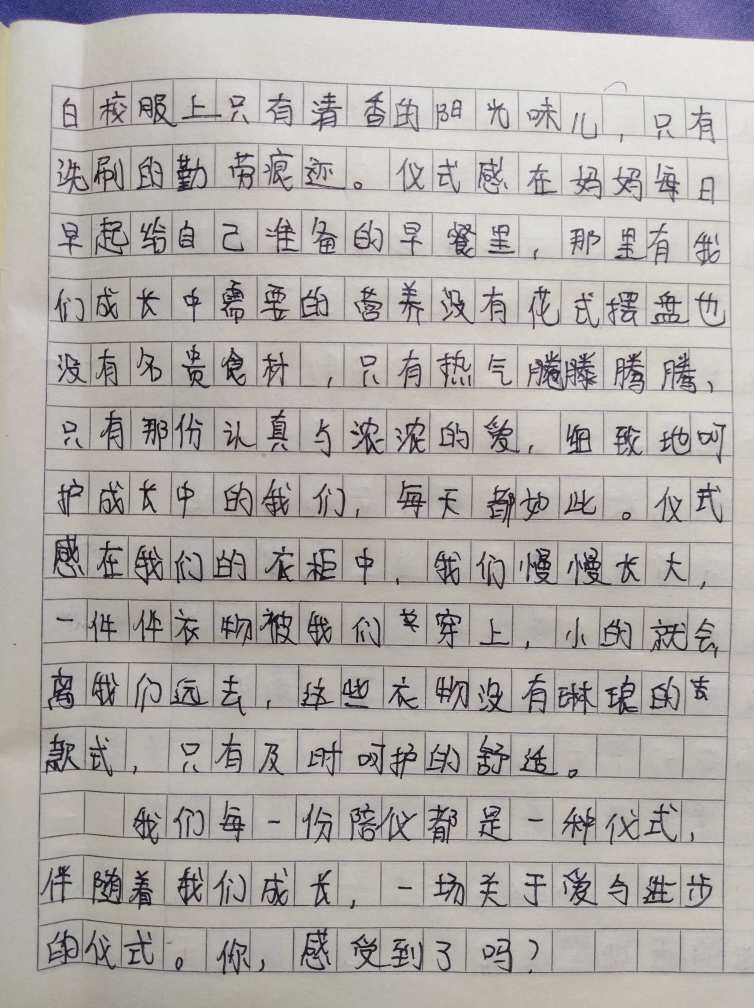 白校服上只有清香的阳光味儿，只有
洗刷的勤劳痕迹。仪式感在妈妈每日
早起给自己准备的早餐里，那里有我
们成长中需要的营养没有花式摆盘也
没有名贵食材，只有热气腾腾腾腾、
只有那份认真与浓浓的爱，细致地呵
护成长中的我们，每天都如此。仪式
感在我们的衣柜中，我们慢慢长大，
一件件衣物被我们穿上，小的就会
离我们远去，这些衣物没有琳琅的
款式，只有及时呵护的舒适。
我们每一份陪仪都是一种仪式，
伴随着我们成长，一场关于爱与进步
的仪式。你，感受到了吗？